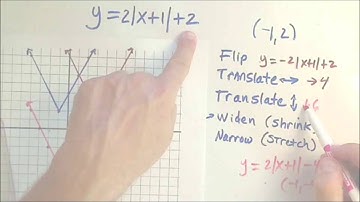 y=2|x+1|+2
(-1,2)
Flip y=-2|x+1|+2
Translate ↔ →4
Translate ↕ ↓6
→ Widen (shrink
Narrow (stretch)
y=2|x+1|-4
(-1,-